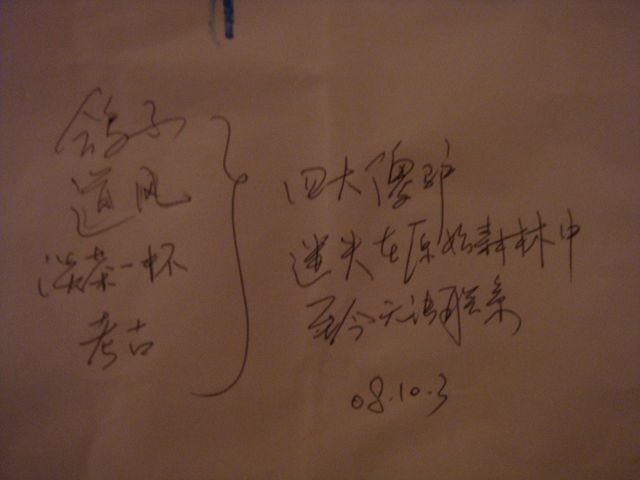 鸽子
道风
淡茶一杯
考古
四大傻驴
迷失在原始森林中
至今无法联系
08.10.3